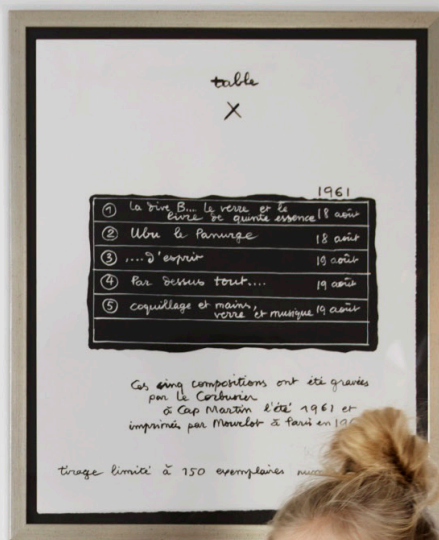 table
X
1961
1 la dive B... le verre et le
livre de quinte essence 18 août
2 Ubu le Panurge 18 août
3 ,...d'esprit 19 août
4 Par dessus tout.... 19 août
5 coquillage et mains,
verre et musique 19 août
Ces cinq compositions ont été gravées
par Le Corbusier
à Cap Martin l'été 1961 et
imprimées par Mourlot à Paris en
tirage limité à 150 exemplaires